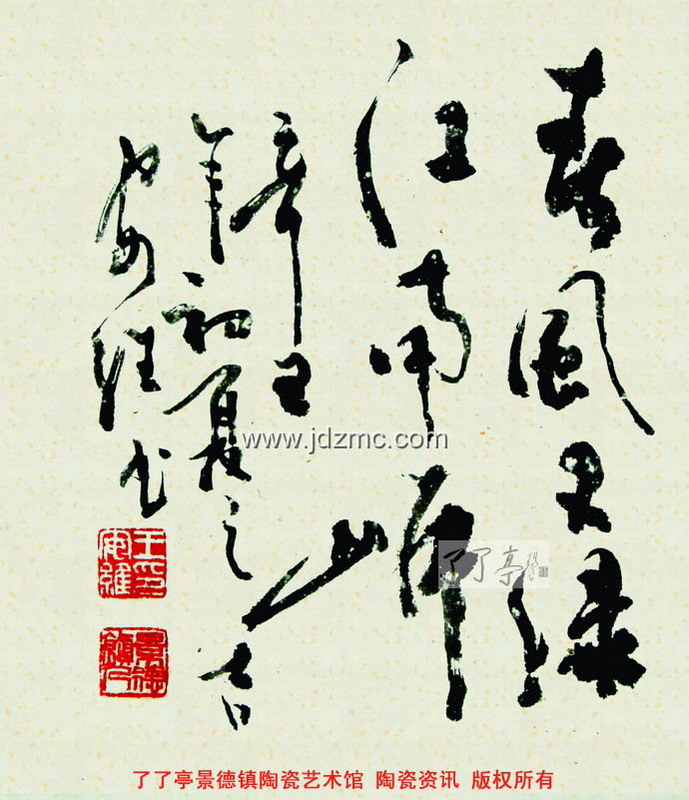 春風又绿
江南岸
年初夏之吉
安维书
王安维印
景德镇人
www.jdzmc.com
了了亭
了了亭景德镇陶瓷艺术馆 陶瓷资讯 版权所有